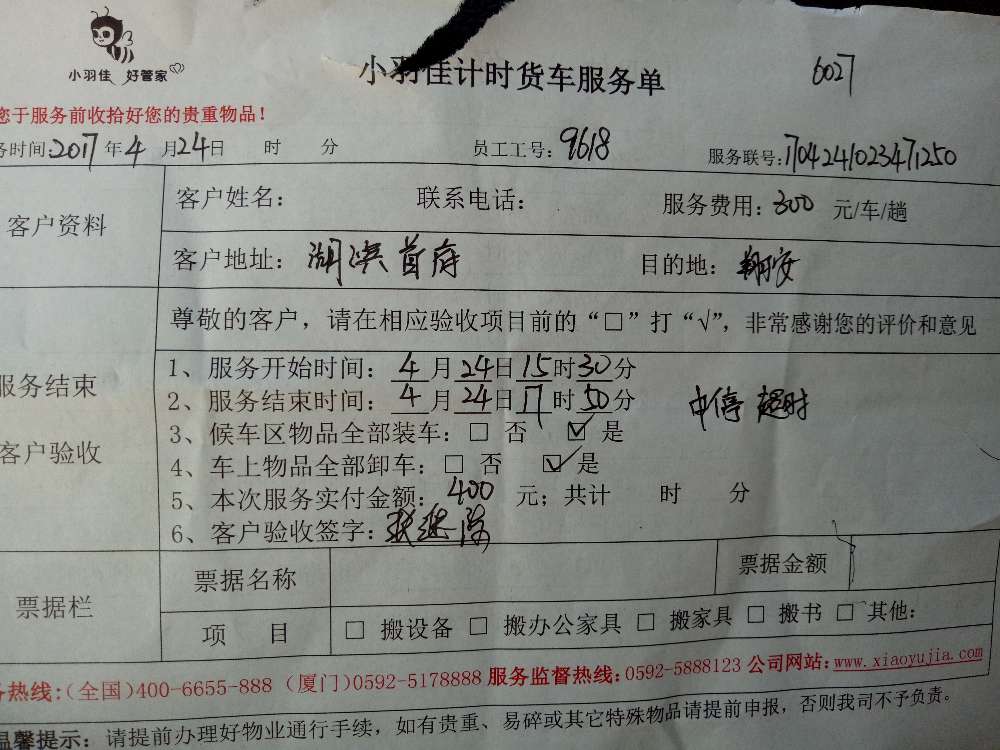 小羽佳 好管家
小羽佳计时货车服务单 6027
您于服务前收拾好您的贵重物品！
务时间:2017年4月24日 时 分 员工工号:9618 服务联号:1704241023471250
客户资料
客户姓名： 联系电话： 服务费用：300 元/车/趟
客户地址：湖滨首府 目的地：翔安
服务结束
客户验收
尊敬的客户，请在相应验收项目前的“□”打“√”，非常感谢您的评价和意见
1、服务开始时间：4月24日15时30分
2、服务结束时间：4月24日17时50分 中停 超时
3、候车区物品全部装车：□ 否 ☑ 是
4、车上物品全部卸车：□ 否 ☑ 是
5、本次服务实付金额：400 元；共计 时 分
6、客户验收签字：
票据栏
票据名称 票据金额
项 目 □ 搬设备 □ 搬办公家具 □ 搬家具 □ 搬书 □ 其他：
务热线:(全国)400-6655-888 (厦门)0592-5178888 服务监督热线:0592-5888123 公司网站:www.xiaoyujia.com
温馨提示：请提前办理好物业通行手续，如有贵重、易碎或其它特殊物品请提前申报，否则我司不予负责。